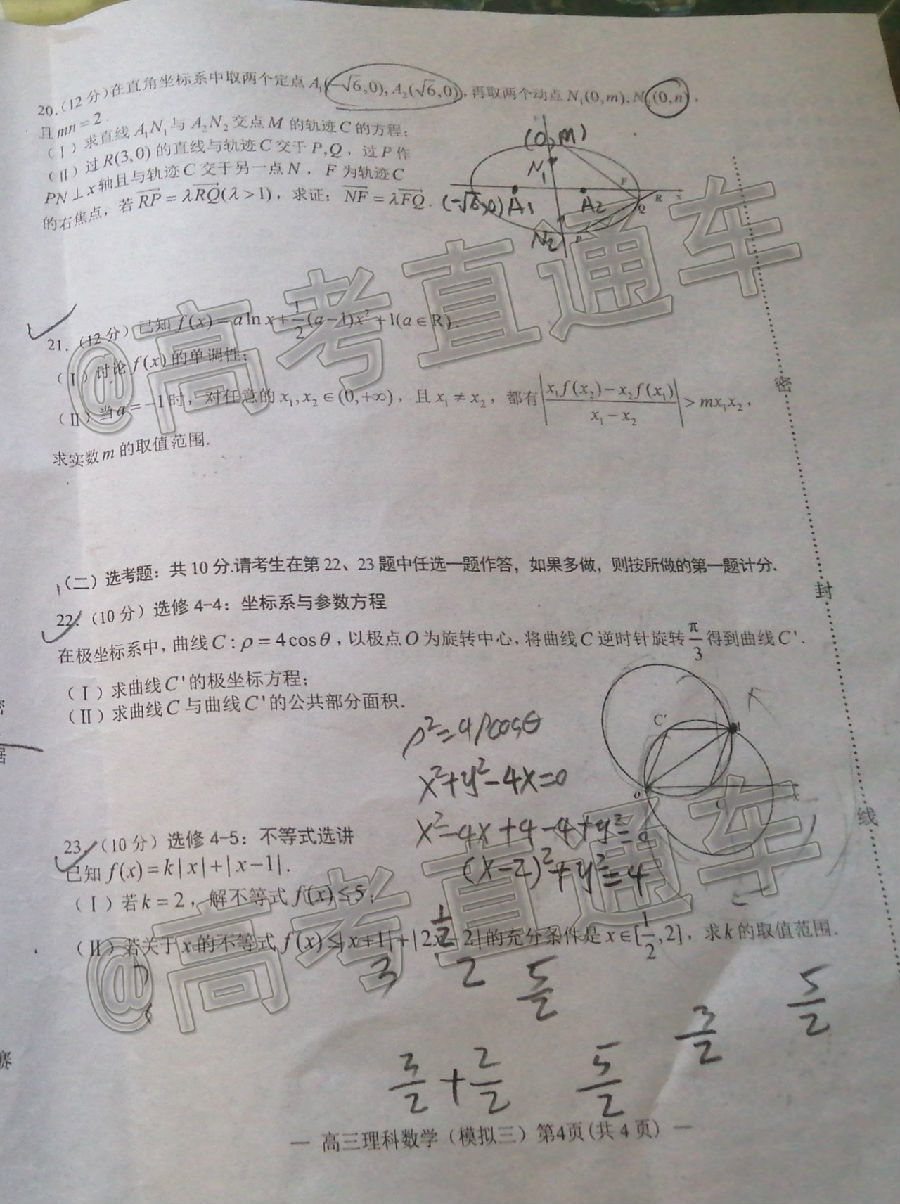 20.(12分)在直角坐标系中取两个定点A₁(-√6,0),A₂(√6,0),再取两个动点N₁(0,m),N₂(0,n),
且mn=2.
(Ⅰ)求直线A₁N₁与A₂N₂交点M的轨迹C的方程;
(Ⅱ)过R(3,0)的直线与轨迹C交于P,Q,过P作
PN⊥x轴且与轨迹C交于另一点N,F为轨迹C
的右焦点,若RP=λRQ(λ>1),求证:NF=λFQ.
(0,m)
N₁
(-√6,0) A₁ A₂
F
Q
R
N₂
P
@高考直通车
21.(12分)已知f(x)=alnx+1/2(a-1)x²+1(a∈R).
(Ⅰ)讨论f(x)的单调性;
(Ⅱ)当a=-1时,对任意的x₁,x₂∈(0,+∞),且x₁≠x₂,都有|(x₁f(x₂)-x₂f(x₁))/(x₁-x₂)|>mx₁x₂,
求实数m的取值范围.
密
(二)选考题:共10分.请考生在第22、23题中任选一题作答,如果多做,则按所做的第一题计分.
封
22.(10分)选修4-4:坐标系与参数方程
在极坐标系中,曲线C:ρ=4cosθ,以极点O为旋转中心,将曲线C逆时针旋转π/3得到曲线C'.
(Ⅰ)求曲线C'的极坐标方程;
(Ⅱ)求曲线C与曲线C'的公共部分面积.
C'
ρ²=4ρcosθ
x²+y²-4x=0
x²-4x+4-4+y²=0
(x-2)²+y²=4
线
23.(10分)选修4-5:不等式选讲
已知f(x)=k|x|+|x-1|.
(Ⅰ)若k=2,解不等式f(x)≤5;
(Ⅱ)若关于x的不等式f(x)≤|x+1|+|2x-2|的充分条件是x∈[1/2,2],求k的取值范围.
@高考直通车
3 2 5/2 3/2 5/2
3/2+2/2 5/2
— 高三理科数学(模拟三)第4页(共4页) —